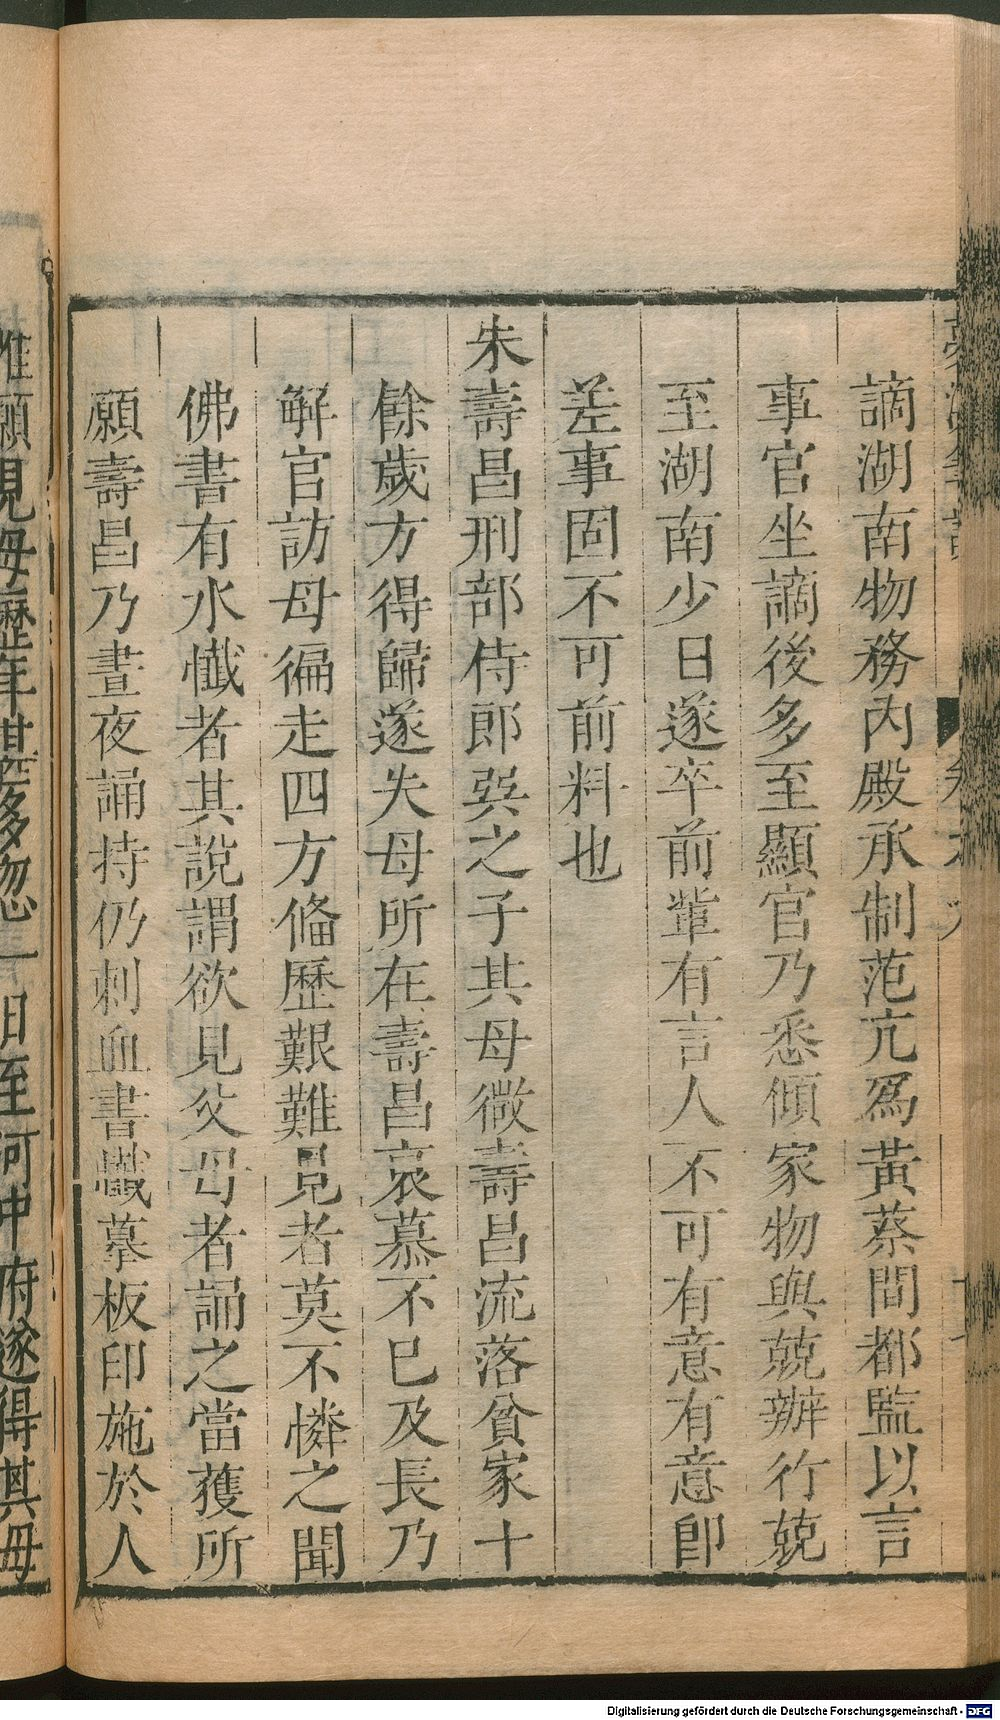 謫湖南物務內殿承制范亢爲黃蔡間都監以言
事官坐謫後多至顯官乃悉傾家物與兢辦行兢
至湖南少日遂卒前輩有言人不可有意有意卽
差事固不可前料也
朱壽昌刑部侍郎㢲之子其母微壽昌流落貧家十
餘歲方得歸遂失母所在壽昌哀慕不已及長乃
解官訪母徧走四方備歷艱難見者莫不憐之聞
佛書有水懺者其說謂欲見父母者誦之當獲所
願壽昌乃晝夜誦持仍刺血書懺摹板印施於人
惟願見母歷年甚多忽一日至河中府遂得其母
Digitalisierung gefördert durch die Deutsche Forschungsgemeinschaft - DFG